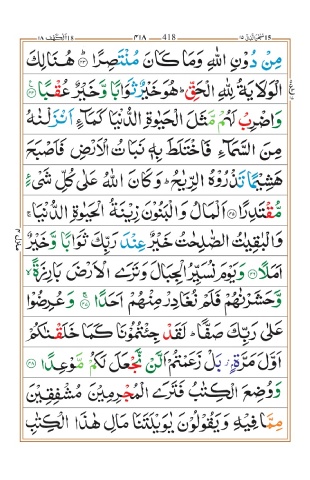 سبحٰن الذی ١٥ ٣١٨ 418 الکهف ١٨
مِنْ دُوْنِ اللّٰهِ وَمَا كَانَ مُنْتَصِرًا ۞ هُنَالِكَ
الْوَلَايَةُ لِلّٰهِ الْحَقِّ ؕ هُوَ خَيْرٌ ثَوَابًا وَّخَيْرٌ عُقْبًا ۞
وَاضْرِبْ لَهُمْ مَّثَلَ الْحَيٰوةِ الدُّنْيَا كَمَآءٍ اَنْزَلْنٰهُ
مِنَ السَّمَآءِ فَاخْتَلَطَ بِهٖ نَبَاتُ الْاَرْضِ فَاَصْبَحَ
هَشِيْمًا تَذْرُوْهُ الرِّيٰحُ ؕ وَكَانَ اللّٰهُ عَلٰى كُلِّ شَیْءٍ
مُّقْتَدِرًا ۞ اَلْمَالُ وَالْبَنُوْنَ زِيْنَةُ الْحَيٰوةِ الدُّنْيَا ۚ
وَالْبٰقِيٰتُ الصّٰلِحٰتُ خَيْرٌ عِنْدَ رَبِّكَ ثَوَابًا وَّخَيْرٌ
اَمَلًا ۞ وَيَوْمَ نُسَيِّرُ الْجِبَالَ وَتَرَى الْاَرْضَ بَارِزَةً ۙ
وَّحَشَرْنٰهُمْ فَلَمْ نُغَادِرْ مِنْهُمْ اَحَدًا ۞ وَعُرِضُوْا
عَلٰى رَبِّكَ صَفًّا ؕ لَقَدْ جِئْتُمُوْنَا كَمَا خَلَقْنٰكُمْ
اَوَّلَ مَرَّةٍۭ ز بَلْ زَعَمْتُمْ اَلَّنْ نَّجْعَلَ لَكُمْ مَّوْعِدًا ۞
وَوُضِعَ الْكِتٰبُ فَتَرَى الْمُجْرِمِيْنَ مُشْفِقِيْنَ
مِمَّا فِيْهِ وَيَقُوْلُوْنَ يٰوَيْلَتَنَا مَالِ هٰذَا الْكِتٰبِ